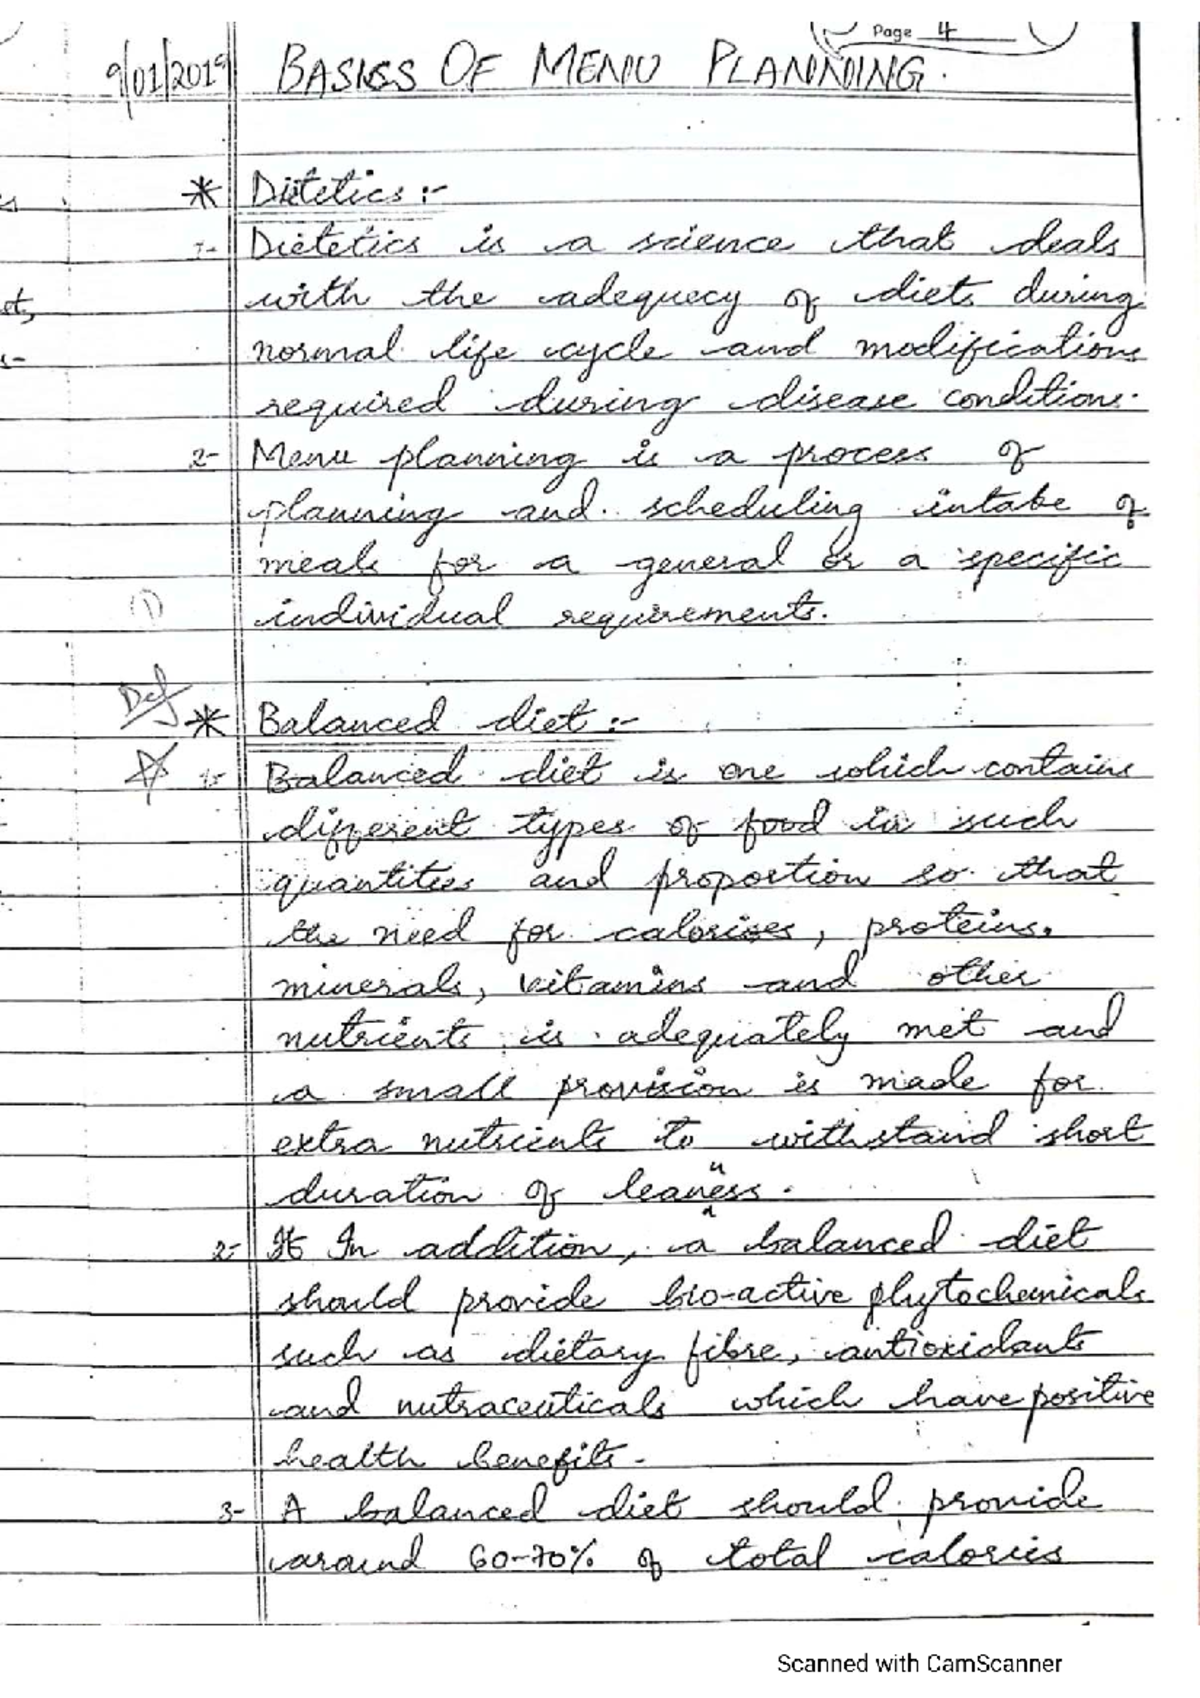 Page 4
9/01/2019 BASICS OF MENU PLANNING.
* Dietetics :-
1- Dietetics is a science that deals
with the adequecy of diet during
normal life cycle and modifications
required during disease conditions.
2- Menu planning is a process of
planning and scheduling intake of
meals for a general or a specific
(1) individual requirements.
Def * Balanced diet :-
1- Balanced diet is one which contains
different types of food in such
quantities and proportion so that
the need for calories, proteins,
minerals, vitamins and other
nutrients is adequately met and
a small provision is made for
extra nutrients to withstand short
duration of leanness.
2- It In addition, a balanced diet
should provide bio-active phytochemicals
such as dietary fibre, antioxidants
and nutraceuticals which have positive
health benefits.
3- A balanced diet should provide
around 60-70% of total calories
Scanned with CamScanner